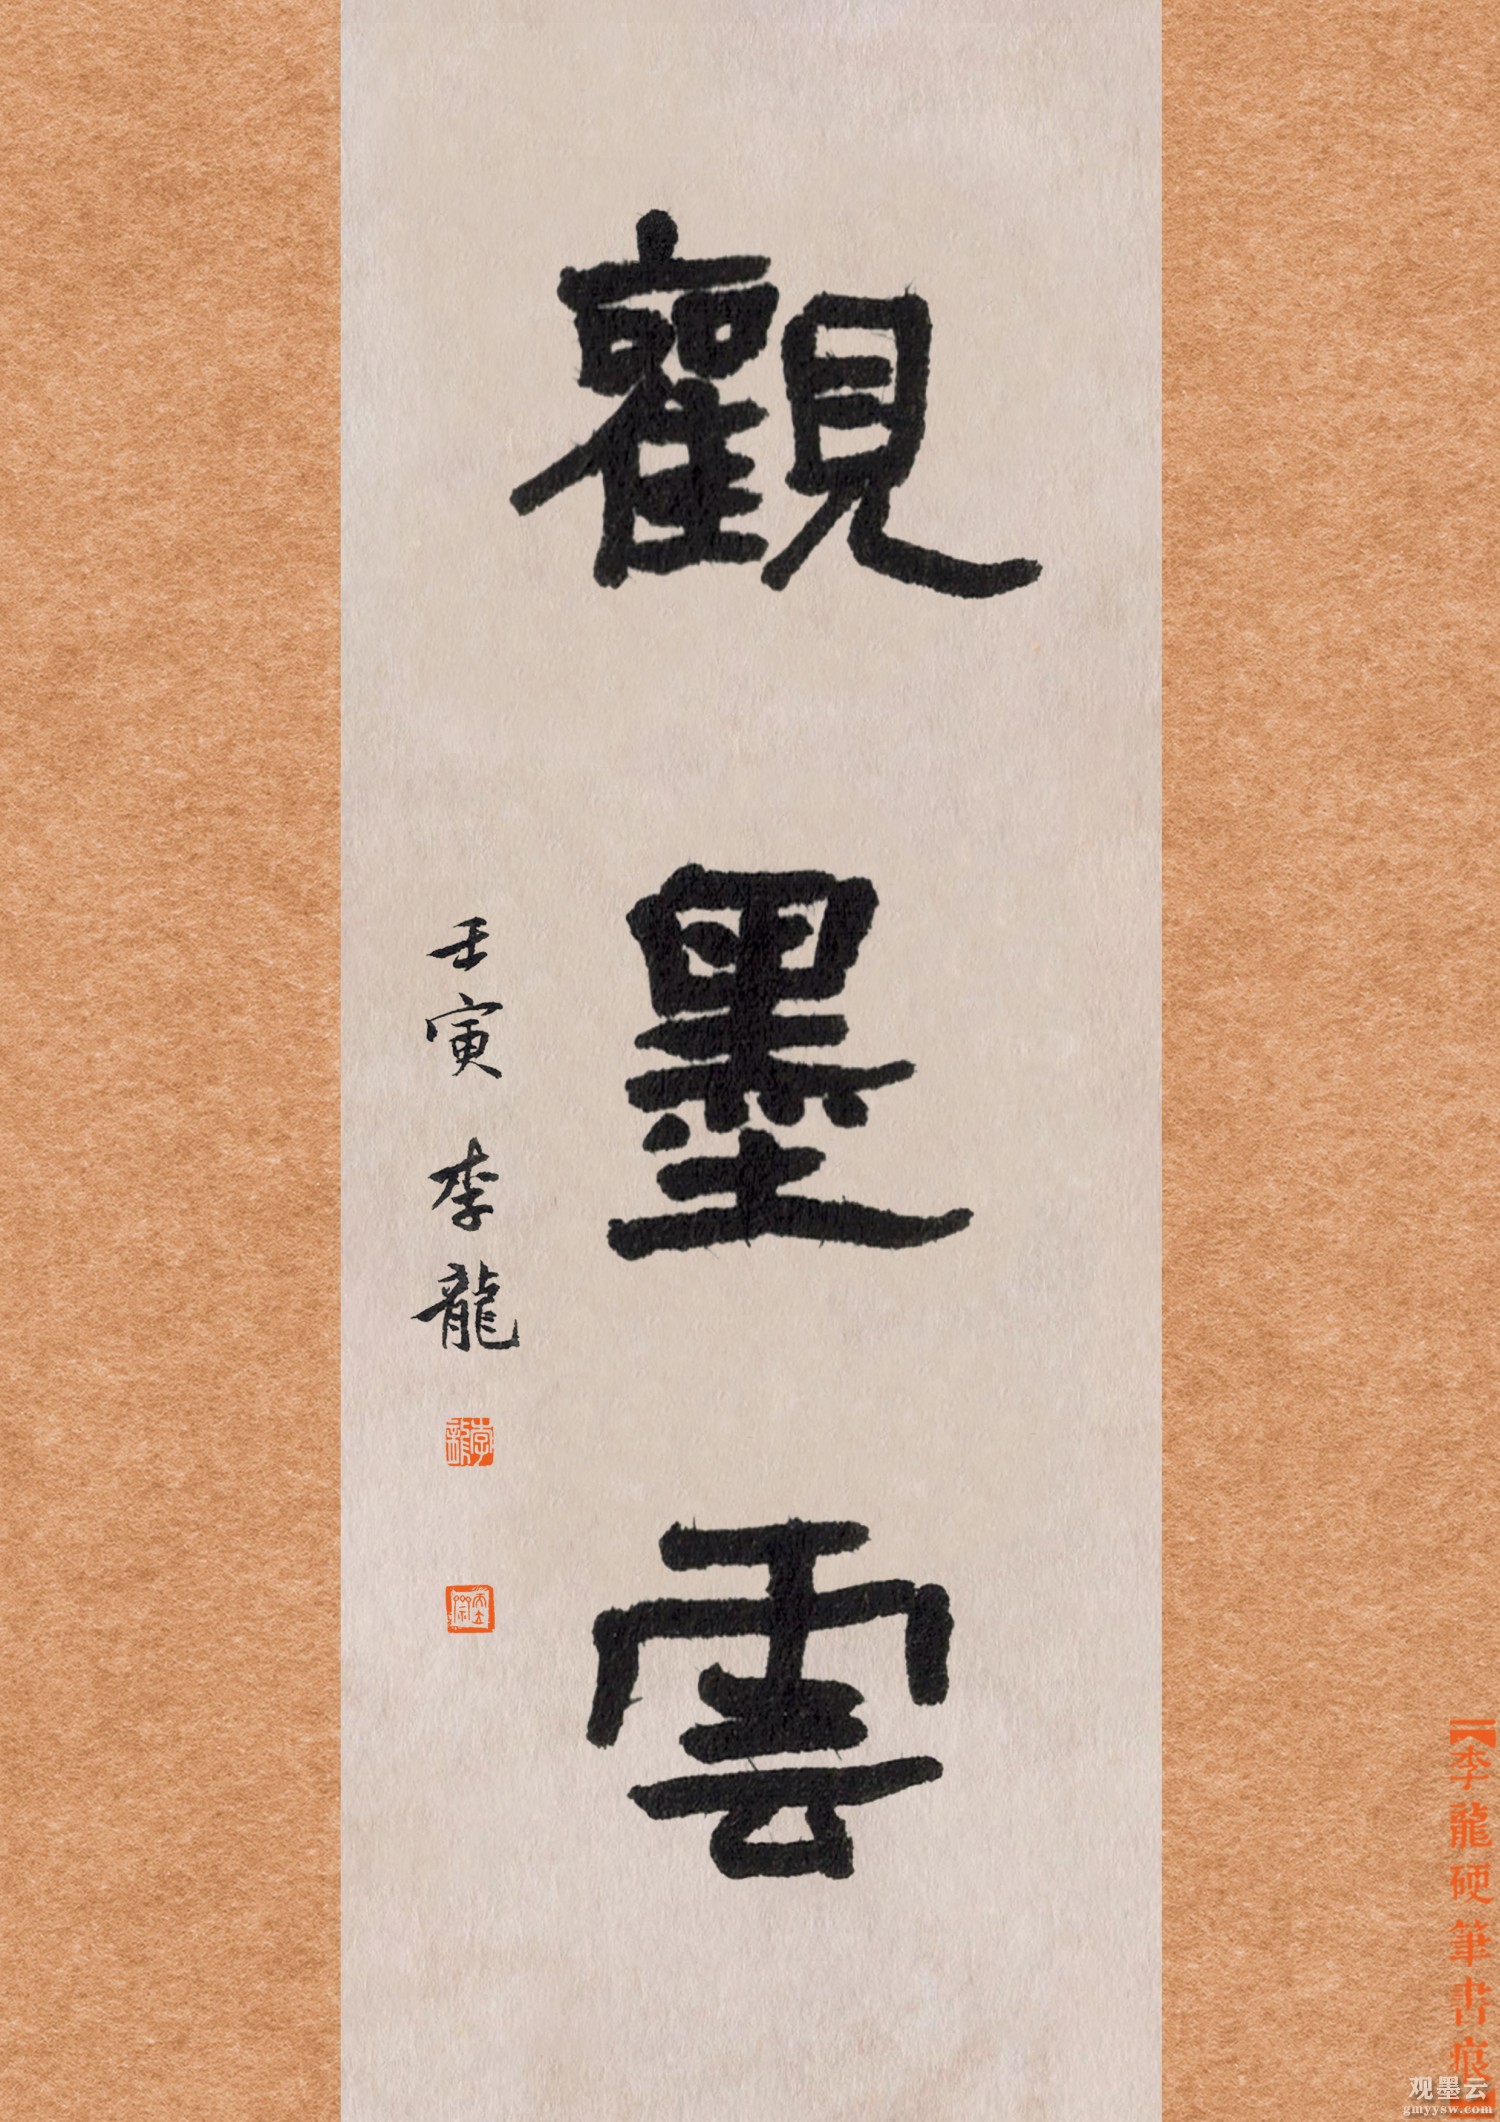 觀墨雲
壬寅 李龍
李龍
【李龍硬筆書痕
观墨云
gmyysw.com